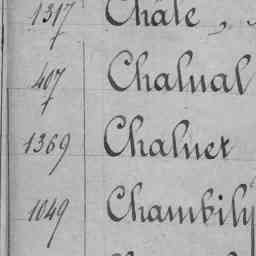 1317 Châle
407 Chalual
1369 Chaluet
1049 Chambily